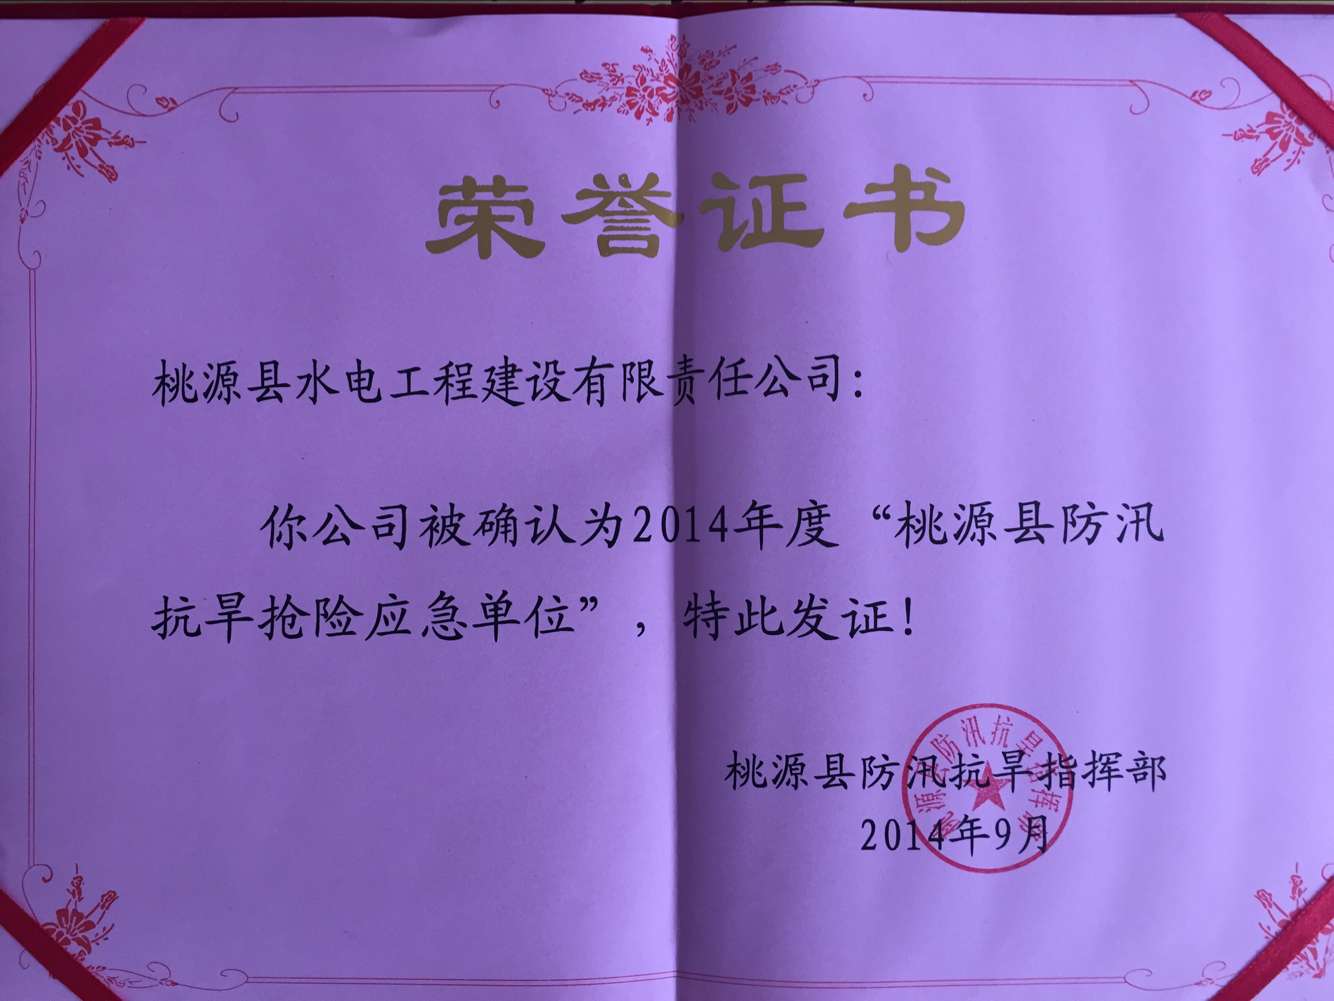 荣誉证书
桃源县水电工程建设有限责任公司：
你公司被确认为2014年度“桃源县防汛
抗旱抢险应急单位”，特此发证！
桃源县防汛抗旱指挥部
2014年9月
桃源县防汛抗旱指挥部